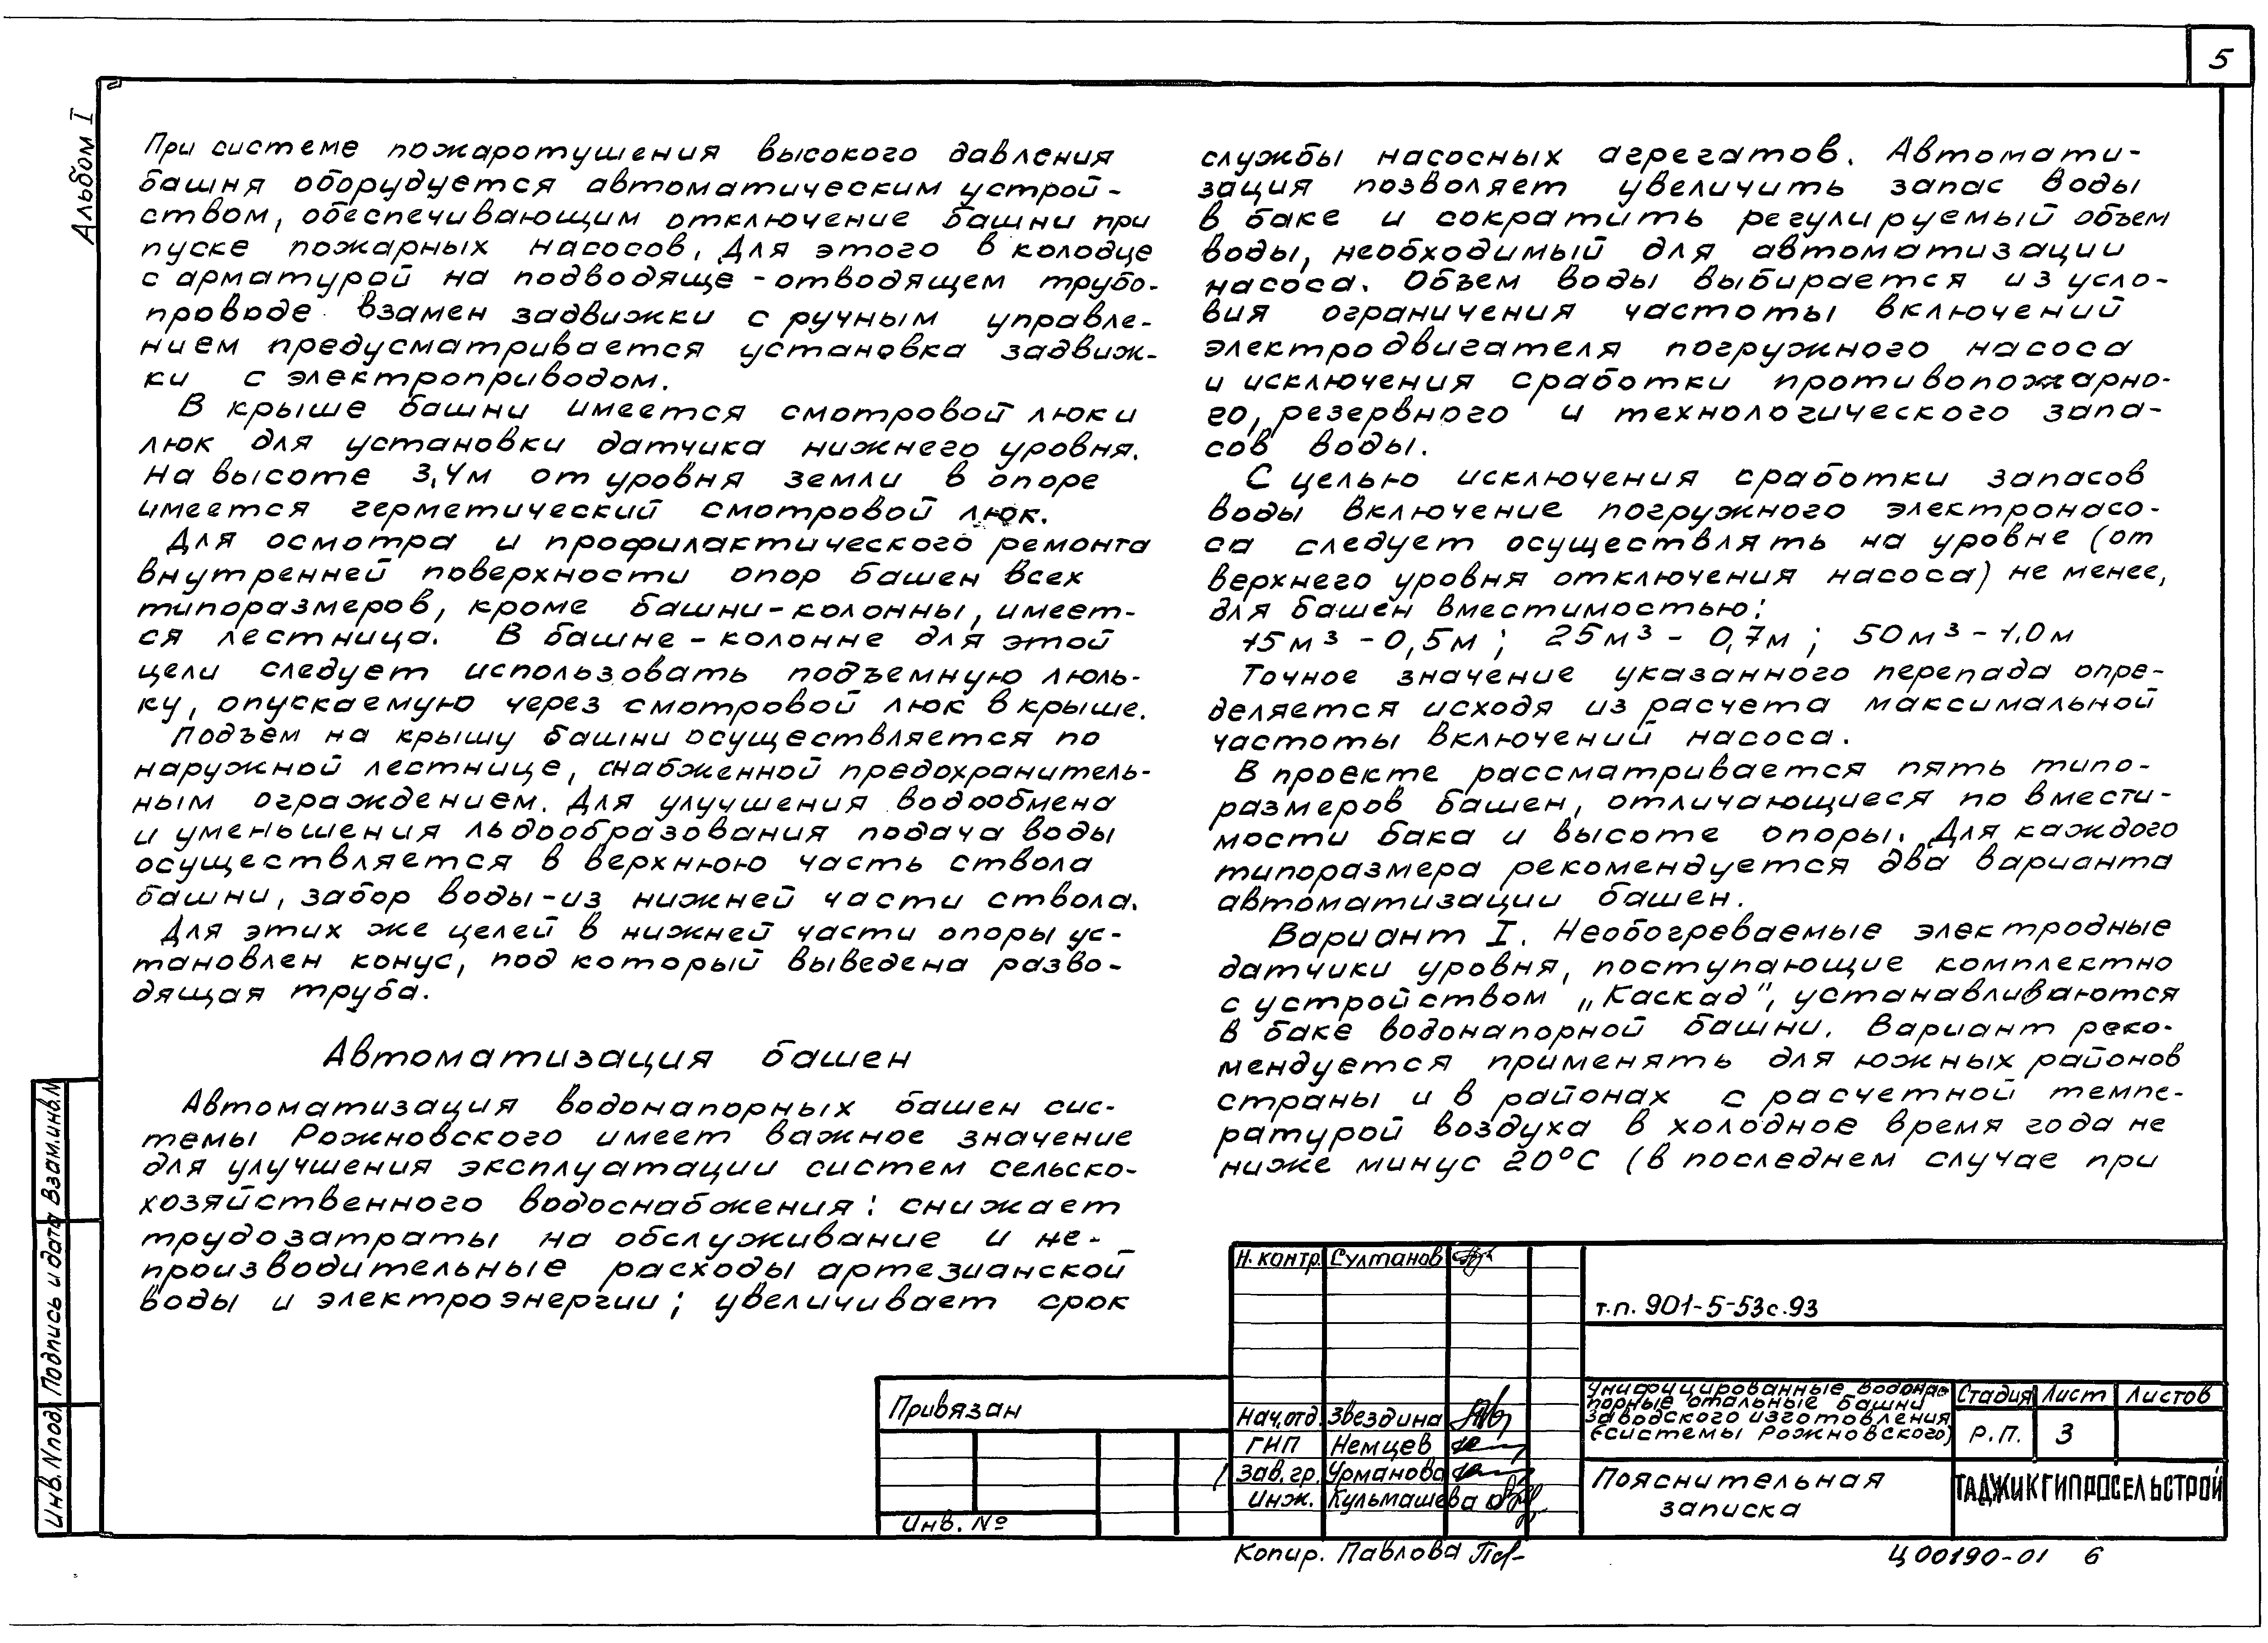 5
Альбом I
При системе пожаротушения высокого давления
башня оборудуется автоматическим устрой-
ством, обеспечивающим отключение башни при
пуске пожарных насосов. Для этого в колодце
с арматурой на подводяще-отводящем трубо-
проводе взамен задвижки с ручным управле-
нием предусматривается установка задвиж-
ки с электроприводом.
В крыше башни имеется смотровой люк и
люк для установки датчика нижнего уровня.
На высоте 3,4м от уровня земли в опоре
имеется герметический смотровой люк.
Для осмотра и профилактического ремонта
внутренней поверхности опор башен всех
типоразмеров, кроме башни-колонны, имеет-
ся лестница. В башне-колонне для этой
цели следует использовать подъемную люль-
ку, опускаемую через смотровой люк в крыше.
Подъем на крышу башни осуществляется по
наружной лестнице, снабженной предохранитель-
ным ограждением. Для улучшения водообмена
и уменьшения льдообразования подача воды
осуществляется в верхнюю часть ствола
башни, забор воды-из нижней части ствола.
Для этих же целей в нижней части опоры ус-
тановлен конус, под который выведена разво-
дящая труба.
Автоматизация башен
Автоматизация водонапорных башен сис-
темы Рожновского имеет важное значение
для улучшения эксплуатации систем сельско-
хозяйственного водоснабжения: снижает
трудозатраты на обслуживание и не-
производительные расходы артезианской
воды и электроэнергии; увеличивает срок
службы насосных агрегатов. Автомати-
зация позволяет увеличить запас воды
в баке и сократить регулируемый объем
воды, необходимый для автоматизации
насоса. Объем воды выбирается из усло-
вия ограничения частоты включений
электродвигателя погружного насоса
и исключения сработки противопожарно-
го, резервного и технологического запа-
сов воды.
С целью исключения сработки запасов
воды включение погружного электронасо-
са следует осуществлять на уровне (от
верхнего уровня отключения насоса) не менее,
для башен вместимостью:
15м³ - 0,5м; 25м³ - 0,7м; 50м³ - 1.0м
Точное значение указанного перепада опре-
деляется исходя из расчета максимальной
частоты включений насоса.
В проекте рассматривается пять типо-
размеров башен, отличающиеся по вмести-
мости бака и высоте опоры. Для каждого
типоразмера рекомендуется два варианта
автоматизации башен.
Вариант I. Необогреваемые электродные
датчики уровня, поступающие комплектно
с устройством „Каскад", устанавливаются
в баке водонапорной башни. Вариант реко-
мендуется применять для южных районов
страны и в районах с расчетной темпе-
ратурой воздуха в холодное время года не
ниже минус 20°С (в последнем случае при
Инв. N подл Подпись и дата Взам.инв.N
Привязан
Инв. №
Н. контр. Султанов
Нач.отд. Звездина
ГИП Немцев
Зав. гр. Урманова
Инж. Кульмашева
т.п. 901-5-53с.93
Унифицированные водона-
порные стальные башни
заводского изготовления
(системы Рожновского)
Стадия Лист Листов
Р.П. 3
Пояснительная
записка
ТАДЖИКГИПРОСЕЛЬСТРОЙ
Копир. Павлова
Ц00190-01 6